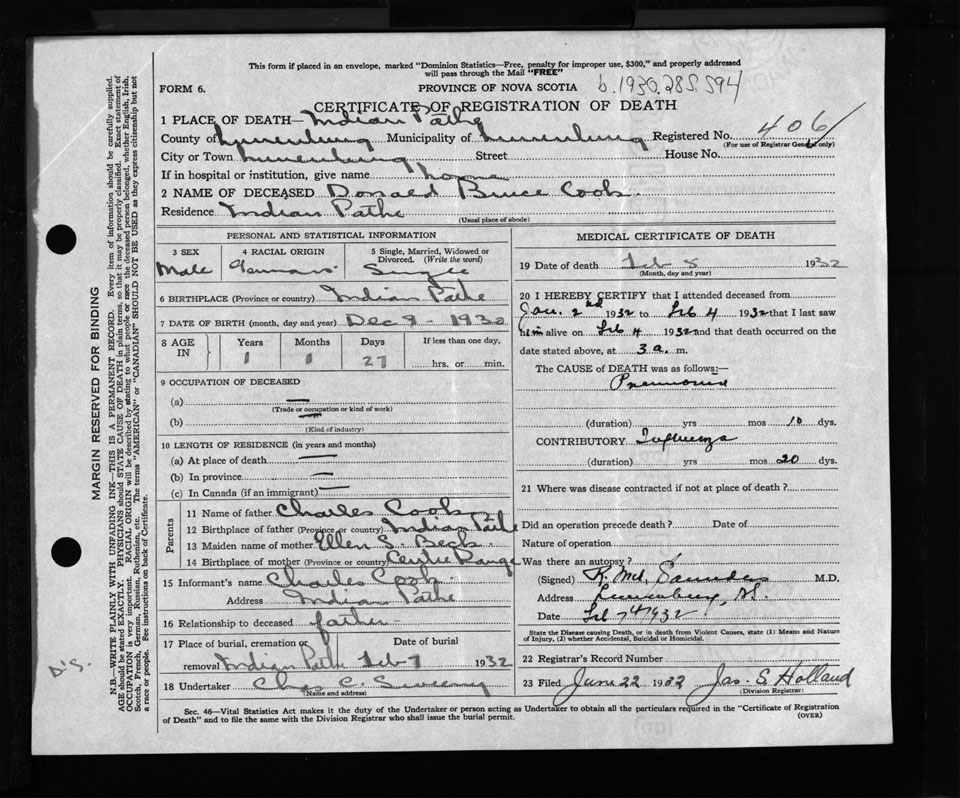 This form if placed in an envelope, marked "Dominion Statistics—Free, penalty for improper use, $300," and properly addressed
will pass through the Mail "FREE"
FORM 6.
PROVINCE OF NOVA SCOTIA
b.1930.285.594
CERTIFICATE OF REGISTRATION OF DEATH
1 PLACE OF DEATH— Indian Pathe
County of Lunenburg Municipality of Lunenburg Registered No. 406
(For use of Registrar General only)
City or Town Lunenburg Street House No.
If in hospital or institution, give name home
2 NAME OF DECEASED Donald Bruce Cook
Residence Indian Pathe
(Usual place of abode)
PERSONAL AND STATISTICAL INFORMATION
3 SEX 4 RACIAL ORIGIN 5 Single, Married, Widowed or
Divorced (Write the word)
Male German Single
6 BIRTHPLACE (Province or country) Indian Pathe
7 DATE OF BIRTH (month, day and year) Dec 9 1930
8 AGE IN Years Months Days If less than one day,
1 1 27 hrs. or min.
9 OCCUPATION OF DECEASED
(a) —
(Trade or occupation or kind of work)
(b) —
(Kind of industry)
10 LENGTH OF RESIDENCE (in years and months)
(a) At place of death —
(b) In province —
(c) In Canada (if an immigrant) —
Parents
11 Name of father Charles Cook
12 Birthplace of father (Province or country) Indian Pathe
13 Maiden name of mother Ellen S. Beck
14 Birthplace of mother (Province or country) Centre Range
15 Informant's name Charles Cook
Address Indian Pathe
16 Relationship to deceased father
17 Place of burial, cremation or Date of burial
removal Indian Pathe Feb 7 1932
18 Undertaker Chas C. Sweeny
(Name and address)
MEDICAL CERTIFICATE OF DEATH
19 Date of death Feb 5 1932
(Month, day and year)
20 I HEREBY CERTIFY that I attended deceased from
Jan. 2nd 1932 to Feb 4 1932 that I last saw
him alive on Feb 4 1932 and that death occurred on the
date stated above, at 3 a. m.
The CAUSE of DEATH was as follows:—
Pneumonia
(duration) yrs mos 10 dys.
CONTRIBUTORY Influenza
(duration) yrs mos 20 dys.
21 Where was disease contracted if not at place of death?
Did an operation precede death? Date of
Nature of operation
Was there an autopsy?
(Signed) R. McL Saunders M.D.
Address Lunenburg, N.S.
Date Feb 7th 1932
State the Disease causing Death, or in death from Violent Causes, state (1) Means and Nature
of Injury, (2) whether Accidental, Suicidal or Homicidal.
22 Registrar's Record Number
23 Filed June 22 1932 Jas. S Holland
(Division Registrar)
Sec. 46—Vital Statistics Act makes it the duty of the Undertaker or person acting as Undertaker to obtain all the particulars required in the "Certificate of Registration
of Death" and to file the same with the Division Registrar who shall issue the burial permit.
(OVER)
MARGIN RESERVED FOR BINDING
N.B.—WRITE PLAINLY WITH UNFADING INK—THIS IS A PERMANENT RECORD. Every item of information should be carefully supplied.
AGE should be stated EXACTLY. PHYSICIANS should STATE CAUSE OF DEATH in plain terms, so that it may be properly classified. Exact statement of
OCCUPATION is very important. RACIAL ORIGIN will be described by stating to what people or race the deceased person belonged, whether English, Irish,
Scotch, French, German, Russian, Ruthenian, etc. The terms "AMERICAN" or "CANADIAN" SHOULD NOT BE USED as they express citizenship but not
a race or people. See instructions on back of Certificate.
D'S.